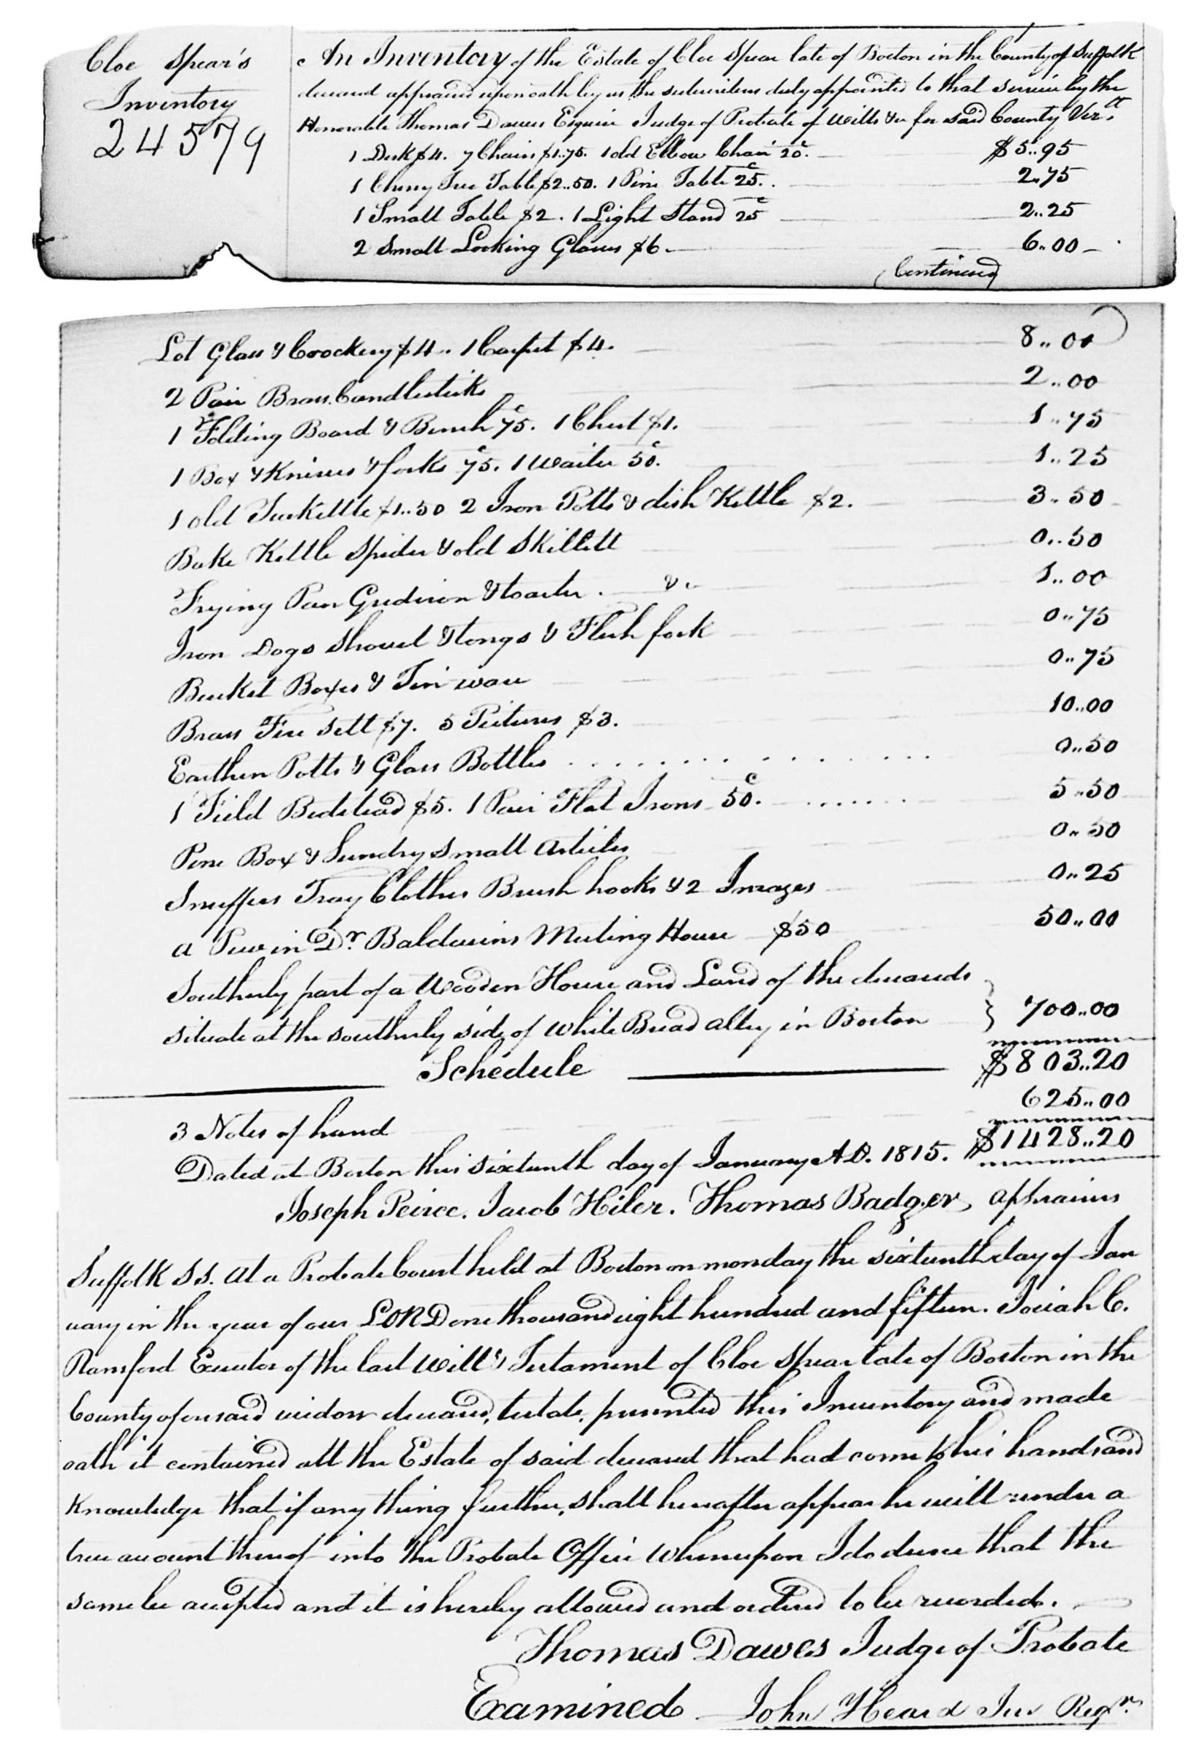 Cloe Spear's
Inventory
24579
An Inventory of the Estate of Cloe Spear late of Boston in the County of Suffolk
deceased appraised upon oath by us the subscribers duly appointed to that service by the
Honorable Thomas Dawes Esquire Judge of Probate of Wills &c for said County Vizt.
1 Desk $4. 7 Chairs $1.75. 1 old Elbow Chair 20c. $5..95
1 Cherry Tree Table $2..50. 1 Pine Table 25c. 2.75
1 Small Table $2. 1 Light Stand 25c 2..25
2 Small Looking Glasses $6. 6..00
Continued
Lot Glass & Crockery $4.. 1 Carpet $4. 8..00
2 Pair Brass Candlesticks 2..00
1 Folding Board & Bench 75c. 1 Chest $1. 1..75
1 Box & Knives & forks 75c. 1 Waiter 50c. 1..25
1 old Teakettle $1..50 2 Iron Potts & dish Kettle $2. 3..50
Bake Kettle Spider & old Skillett 0..50
Frying Pan Gridiron & toaster. &c 1..00
Iron Dogs Shovel & tongs & Flesh fork 0..75
Bucket Boxes & Tin ware 0..75
Brass Fire Sett $7. 5 Pictures $3. 10..00
Earthen Potts & Glass Bottles 0..50
1 Field Bedstead $5. 1 Pair Flat Irons 50c. 5..50
Pine Box & Sundry small articles 0..50
Snuffers Tray Clothes Brush hooks & 2 Images 0..25
a Pew in Dr. Baldwins Meeting House $50 50..00
Southerly part of a Wooden House and Land of the deceaseds
situate at the southerly side of White Bread alley in Boston 700..00
Schedule $803..20
625..00
3 Notes of hand
Dated at Boston this sixteenth day of January A.D. 1815. $1428..20
Joseph Peirce. Jacob Hiler. Thomas Badger, appraisers
Suffolk SS. At a Probate Court held at Boston on monday the sixteenth day of Jan
uary in the year of our LORD one thousand eight hundred and fifteen. Josiah C.
Ransford Executor of the last Will & Testament of Cloe Spear late of Boston in the
County aforesaid widow deceased, testate, presented this Inventory and made
oath it contained all the Estate of said deceased that had come to his hands and
Knowledge that if any thing further, shall hereafter appear he will render a
true account thereof into the Probate Office Whereupon I do decree that the
same be accepted and it is hereby allowed and ordered to be recorded.
Thomas Dawes Judge of Probate
Examined John Heard Jur Regr.